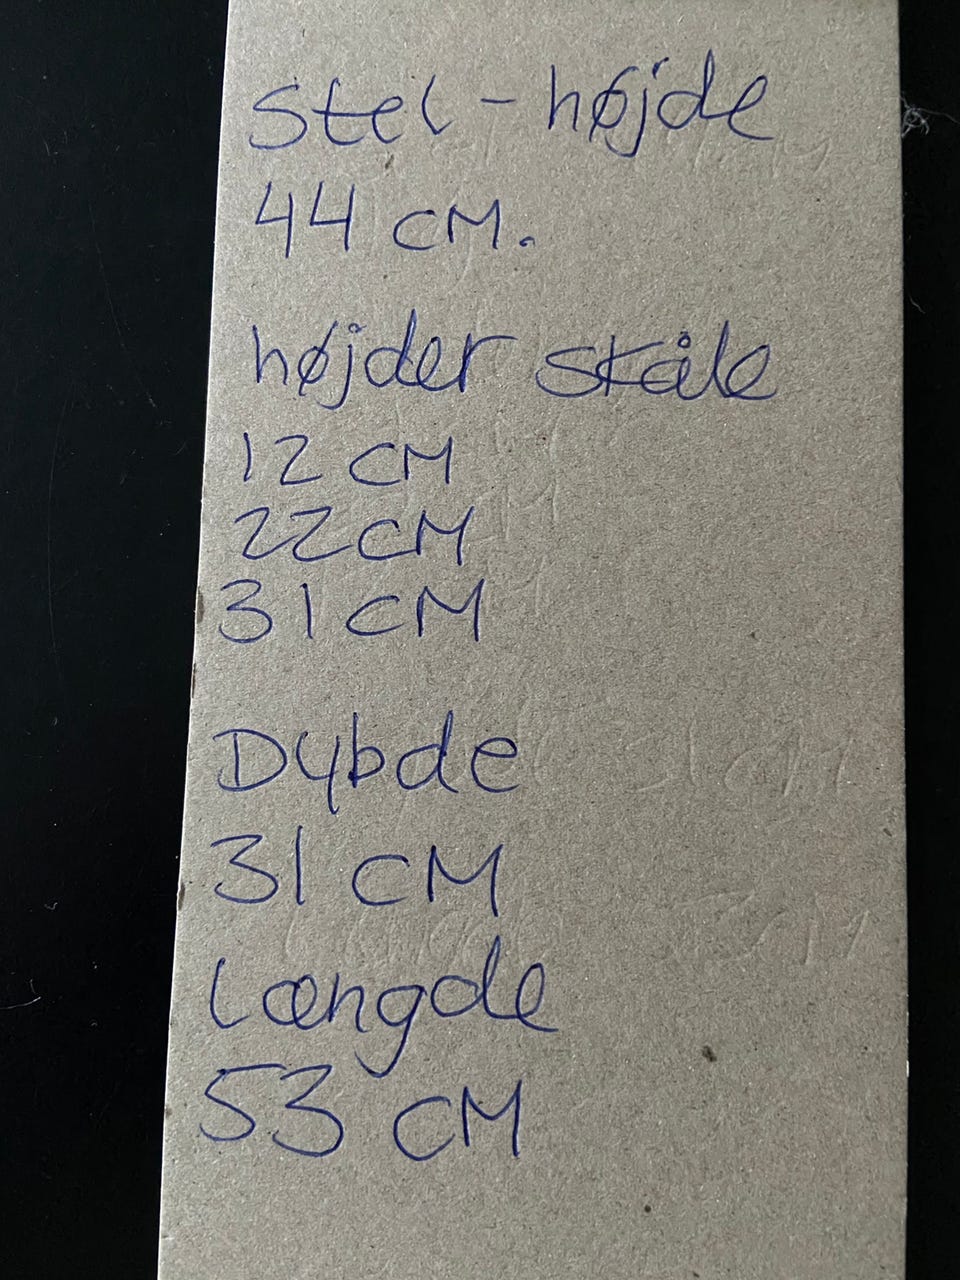 Stel - højde
44 CM.
højder skåle
12 CM
22 CM
31 CM
Dybde
31 CM
Længde
53 CM